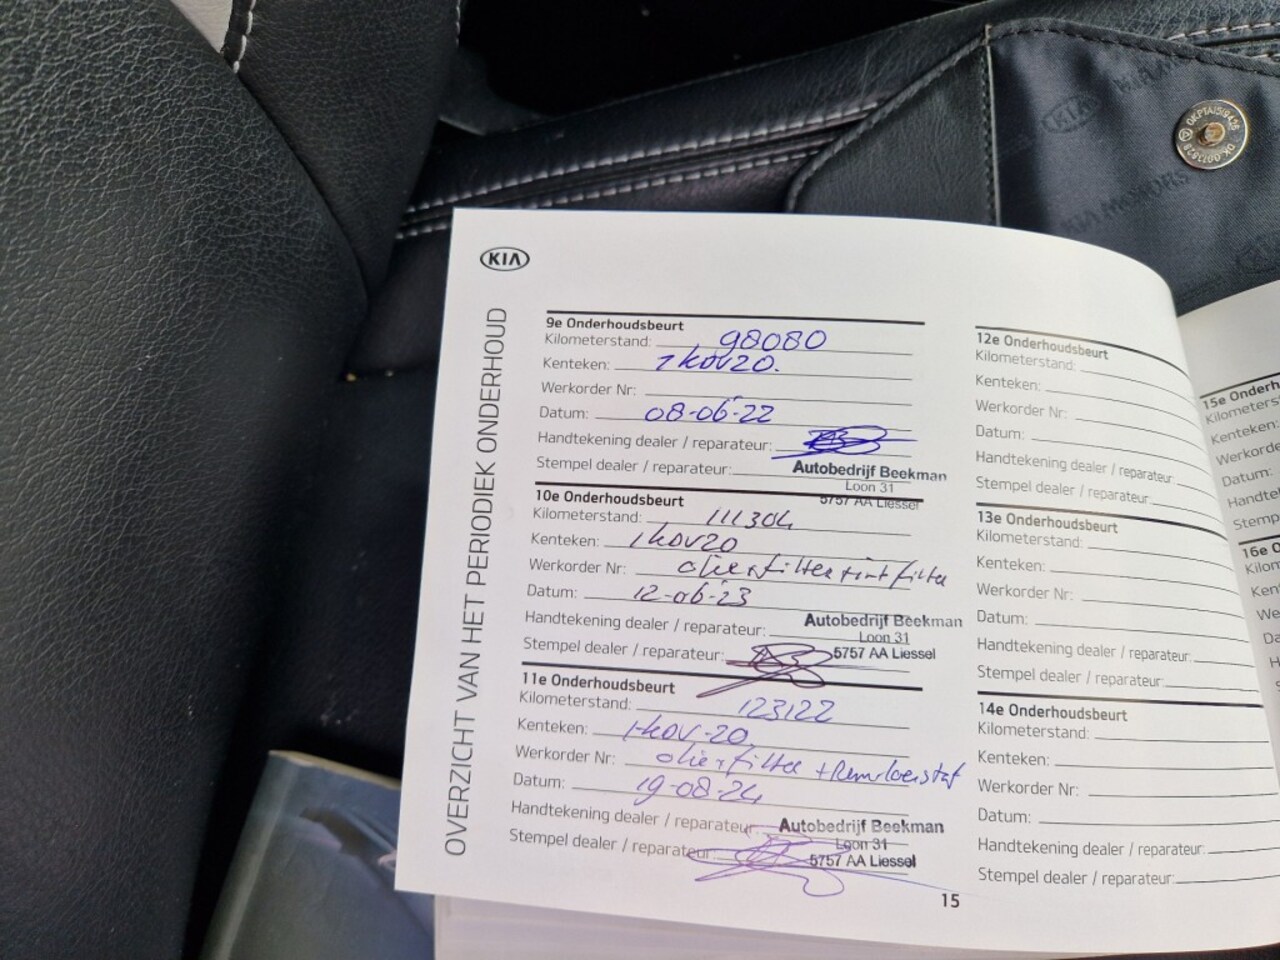 KIA
OVERZICHT VAN HET PERIODIEK ONDERHOUD
9e Onderhoudsbeurt
Kilometerstand: 98080
Kenteken: 1kov20.
Werkorder Nr:
Datum: 08-06-22
Handtekening dealer / reparateur:
Stempel dealer / reparateur: Autobedrijf Beekman
Loon 31
5757 AA Liessel
10e Onderhoudsbeurt
Kilometerstand: 111304
Kenteken: 1kov20
Werkorder Nr: olie+filter+int filter
Datum: 12-06-23
Handtekening dealer / reparateur: Autobedrijf Beekman
Loon 31
Stempel dealer / reparateur: 5757 AA Liessel
11e Onderhoudsbeurt
Kilometerstand: 123122
Kenteken: 1-kov-20
Werkorder Nr: olie+filter +Remvloeistof
Datum: 19-08-24
Handtekening dealer / reparateur: Autobedrijf Beekman
Loon 31
Stempel dealer / reparateur: 5757 AA Liessel
12e Onderhoudsbeurt
Kilometerstand:
Kenteken:
Werkorder Nr:
Datum:
Handtekening dealer / reparateur:
Stempel dealer / reparateur:
13e Onderhoudsbeurt
Kilometerstand:
Kenteken:
Werkorder Nr:
Datum:
Handtekening dealer / reparateur:
Stempel dealer / reparateur:
14e Onderhoudsbeurt
Kilometerstand:
Kenteken:
Werkorder Nr:
Datum:
Handtekening dealer / reparateur:
Stempel dealer / reparateur:
15
15e Onderh
Kilometers
Kenteken:
Werkorde
Datum:
Handte
Stemp
16e O
Kilom
Ken
We
Da
H
S
KIA
KIA MOTORS